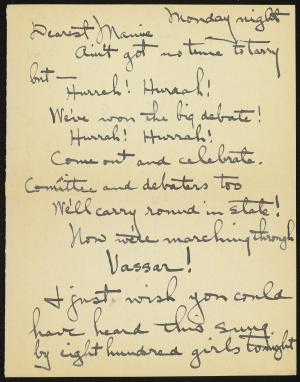 Monday night
Dearest Mamie
Ain't got no time to tarry
but —
Hurrah! Hurrah!
We've won the big debate!
Hurrah! Hurrah!
Come out and celebrate.
Comittee and debaters too
We'll carry round in state!
Now we're marching through
Vassar!
I just wish you could
have heard this sung
by eight hundred girls tonight